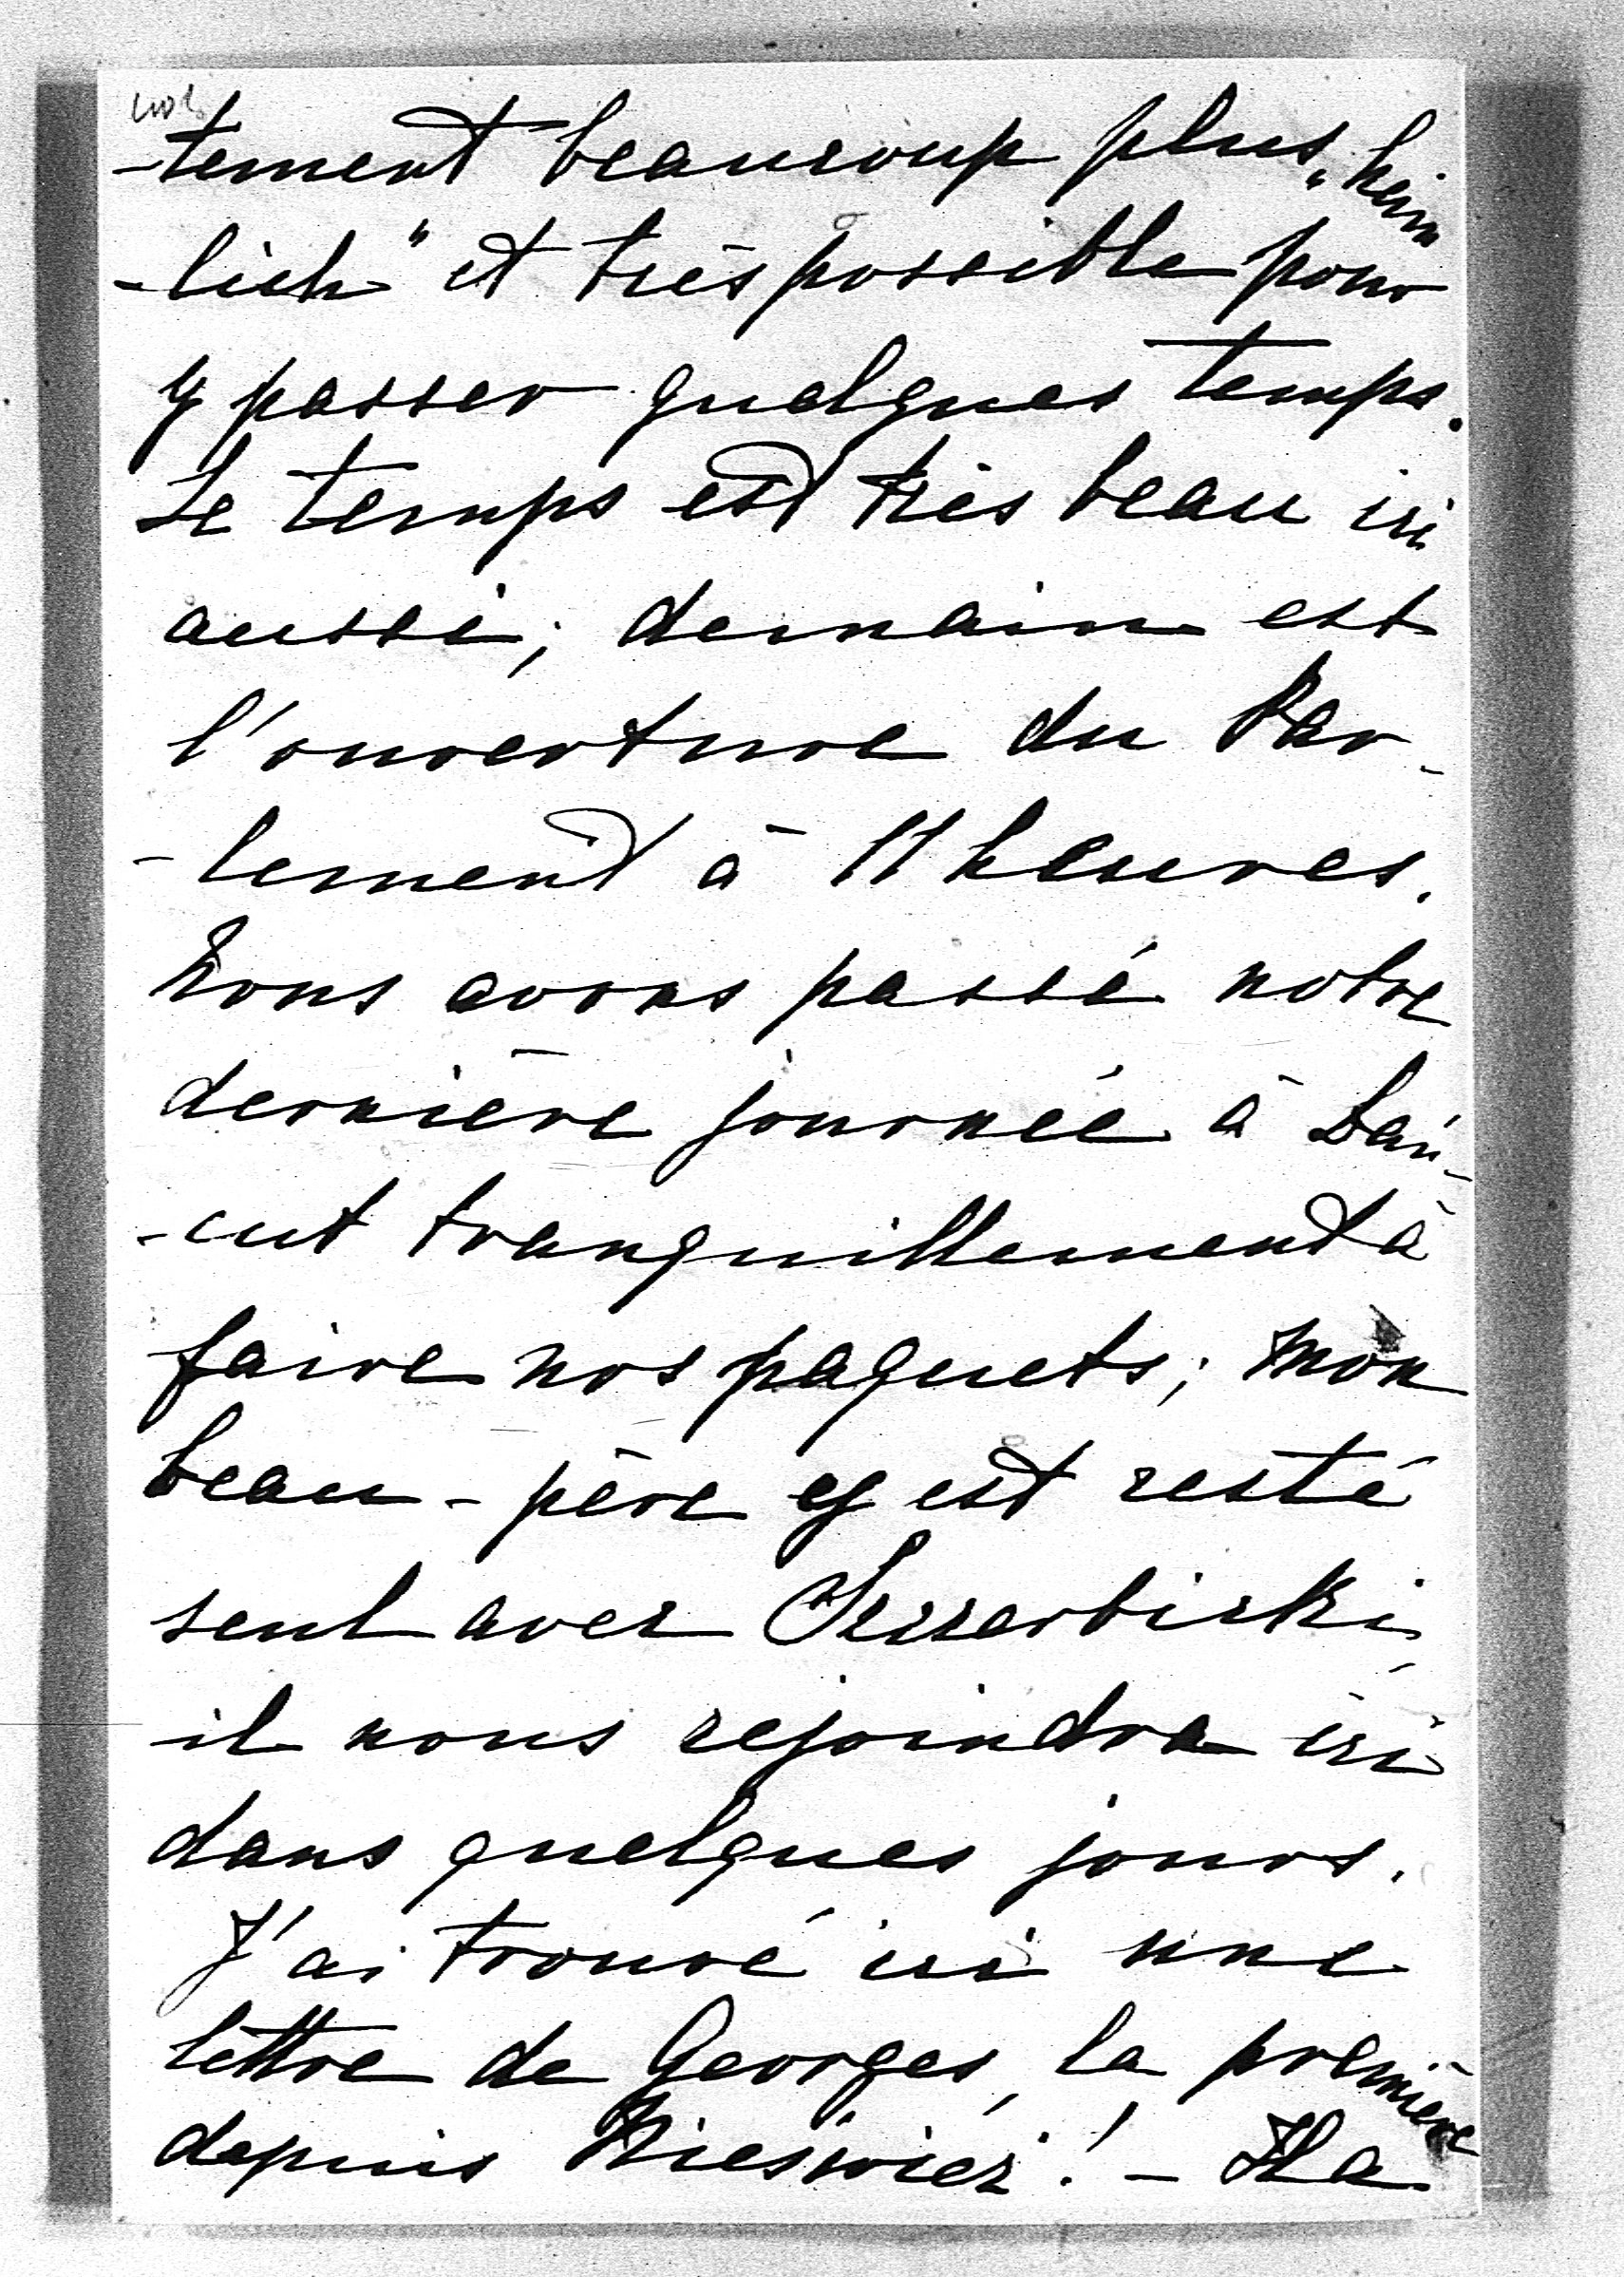 -tement beaucoup plus „heim
-lich" et très possible pour
y passer quelques temps.
Le temps est très beau ici
aussi; demain est
l'ouverture du Par-
-lement à 11 heures.
Nous avons passé notre
dernière journée à Łań-
-cut tranquillement à
faire nos paquets; mon
beau-père y est resté
seul avec Szczerbicki,
il nous rejoindra ici
dans quelques jours.
J'ai trouvé ici une
lettre de Georges, la première
depuis Nieśwież! – Il a